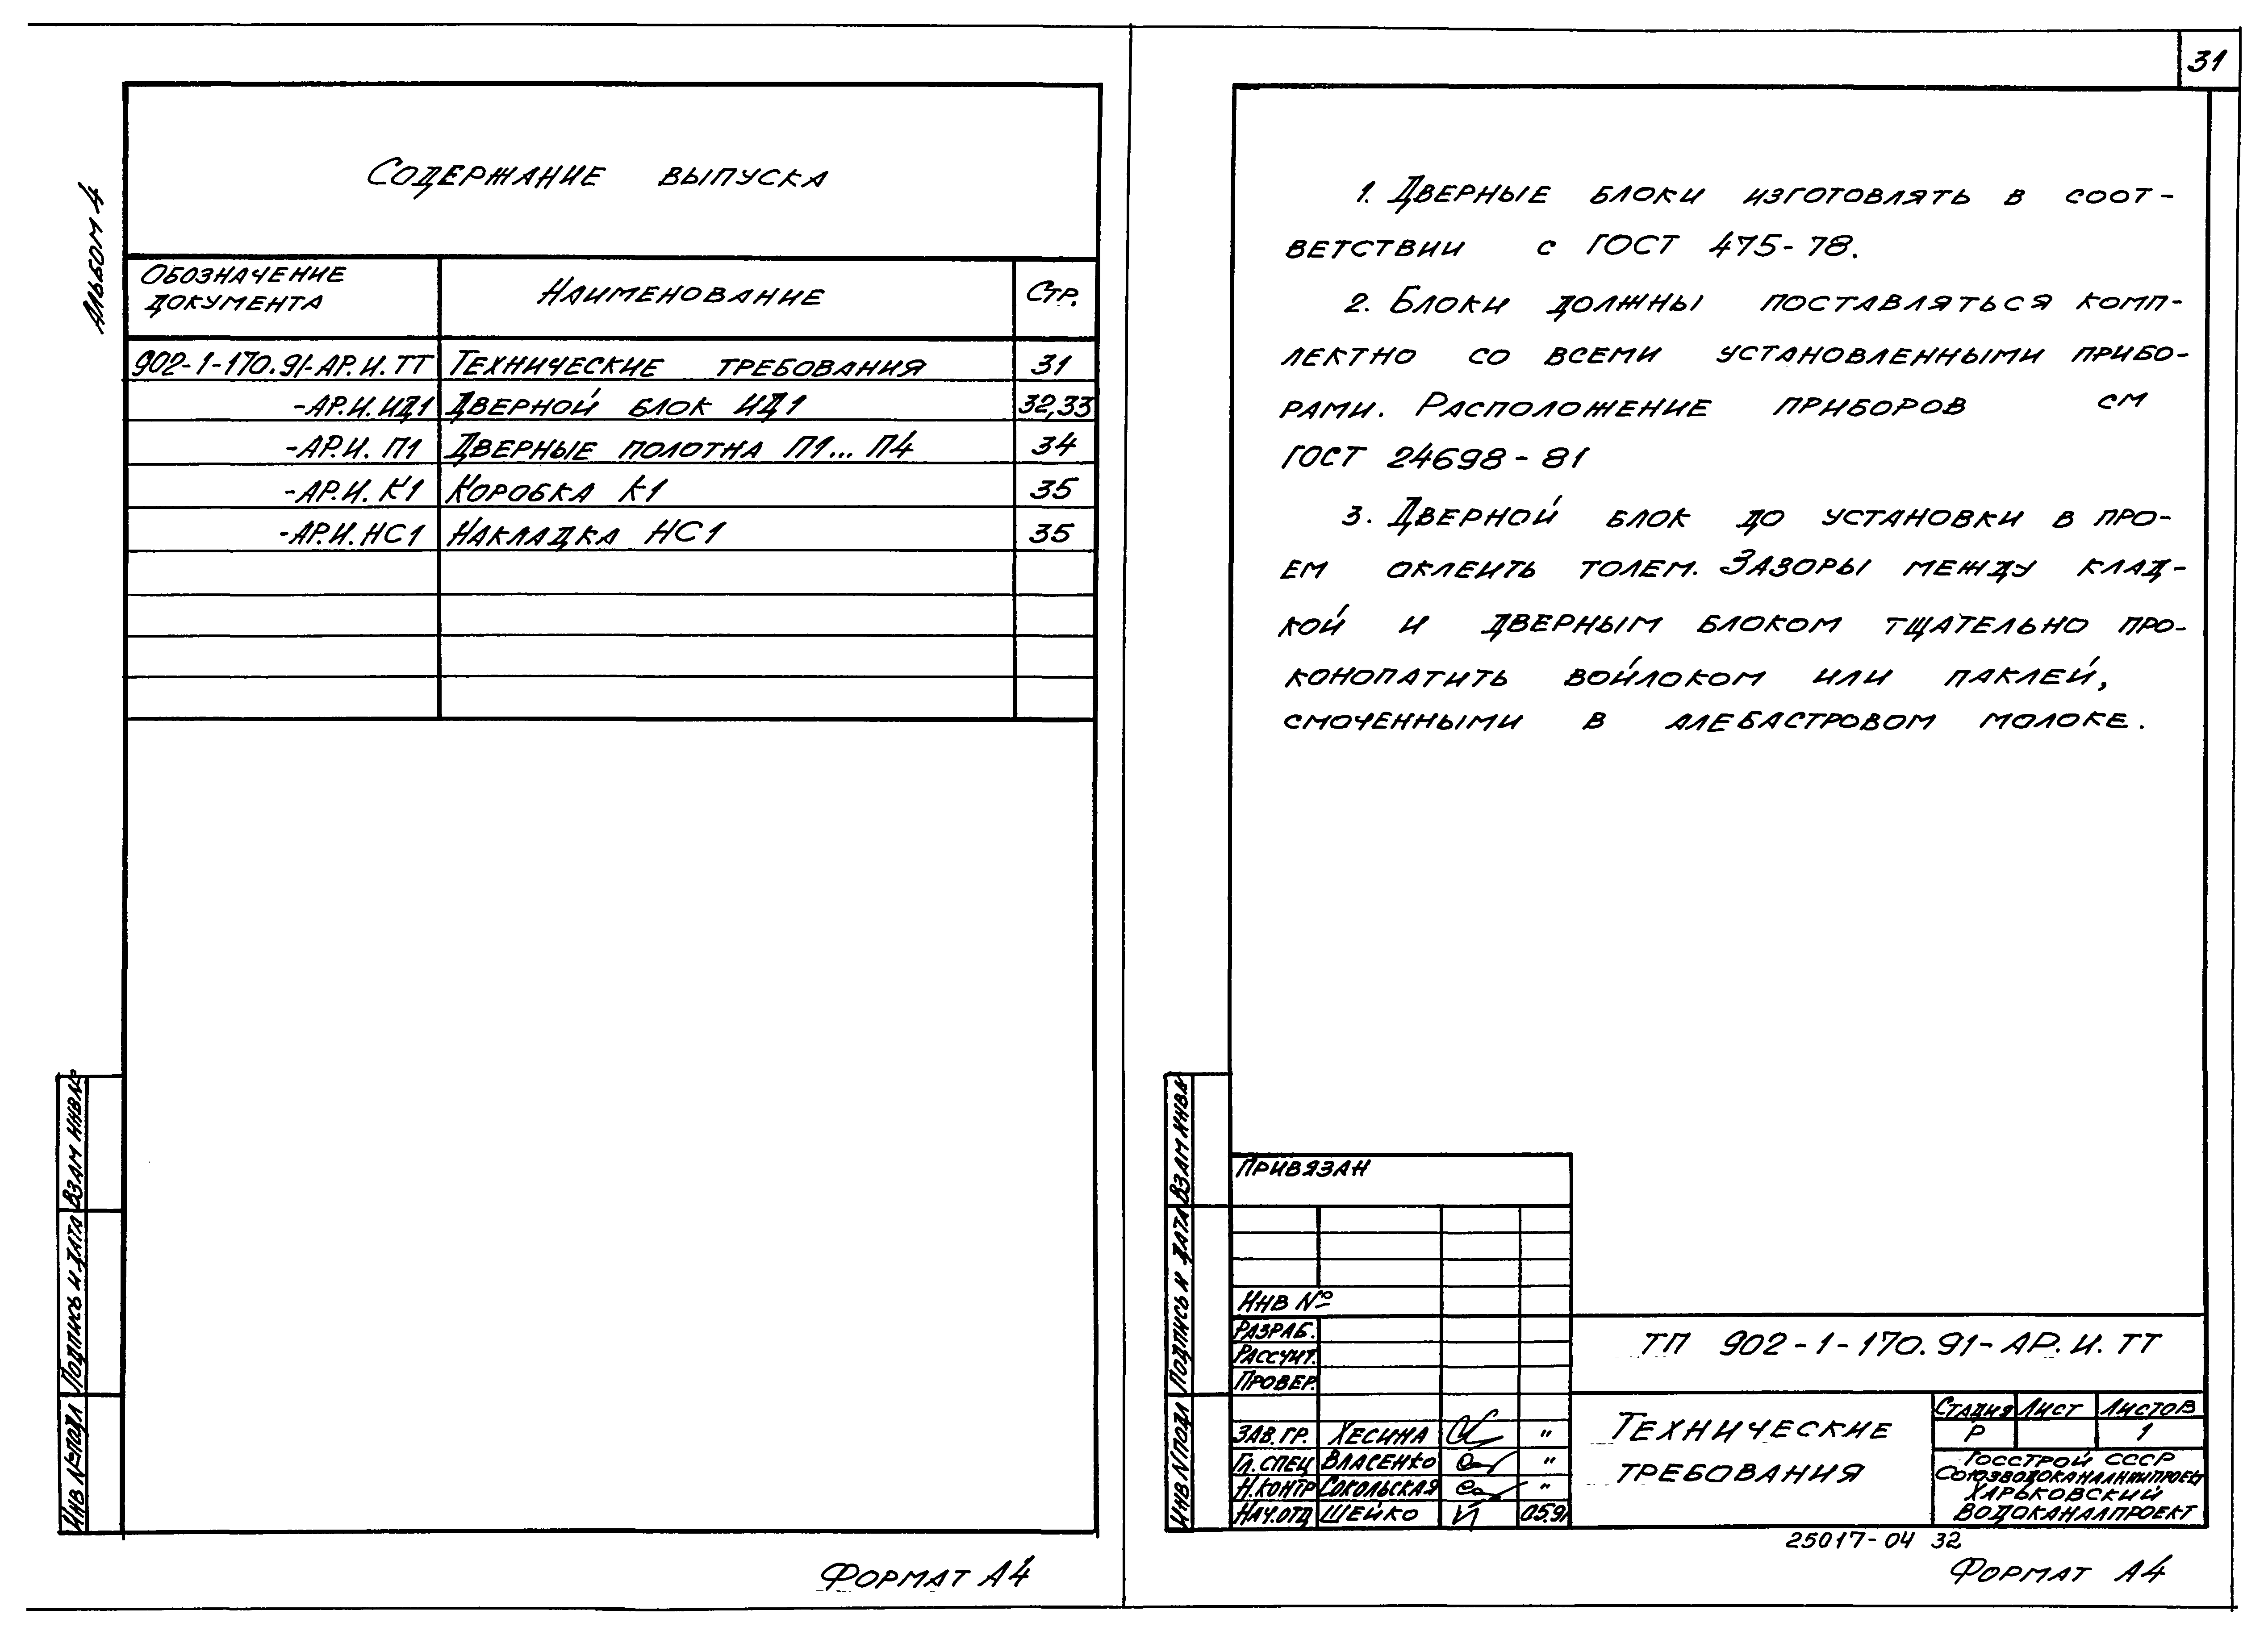 Альбом 4
Содержание выпуска
Обозначение документа Наименование Стр.
902-1-170.91-АР.И.ТТ Технические требования 31
-АР.И.ИД1 Дверной блок ИД1 32,33
-АР.И. П1 Дверные полотна П1... П4 34
-АР.И. К1 Коробка К1 35
-АР.И.НС1 Накладка НС1 35
Взам инв №
Подпись и дата
Инв № подл
Формат А4
31
1. Дверные блоки изготовлять в соот-
ветствии с ГОСТ 475-78.
2. Блоки должны поставляться комп-
лектно со всеми установленными прибо-
рами. Расположение приборов см
ГОСТ 24698-81
3. Дверной блок до установки в про-
ем оклеить толем. Зазоры между клад-
кой и дверным блоком тщательно про-
конопатить войлоком или паклей,
смоченными в алебастровом молоке.
Взам инв №
Подпись и дата
Инв № подл
Привязан
Инв №
Разраб.
Рассчит.
Провер.
Зав. гр. Хесина "
Гл. спец Власенко "
Н. контр Сокольская "
Нач. отд Шейко 05.91
ТП 902-1-170.91-АР.И.ТТ
Технические
требования
Стадия Лист Листов
Р 1
Госстрой СССР
Союзводоканалниипроект
Харьковский
Водоканалпроект
25017-04 32
Формат А4